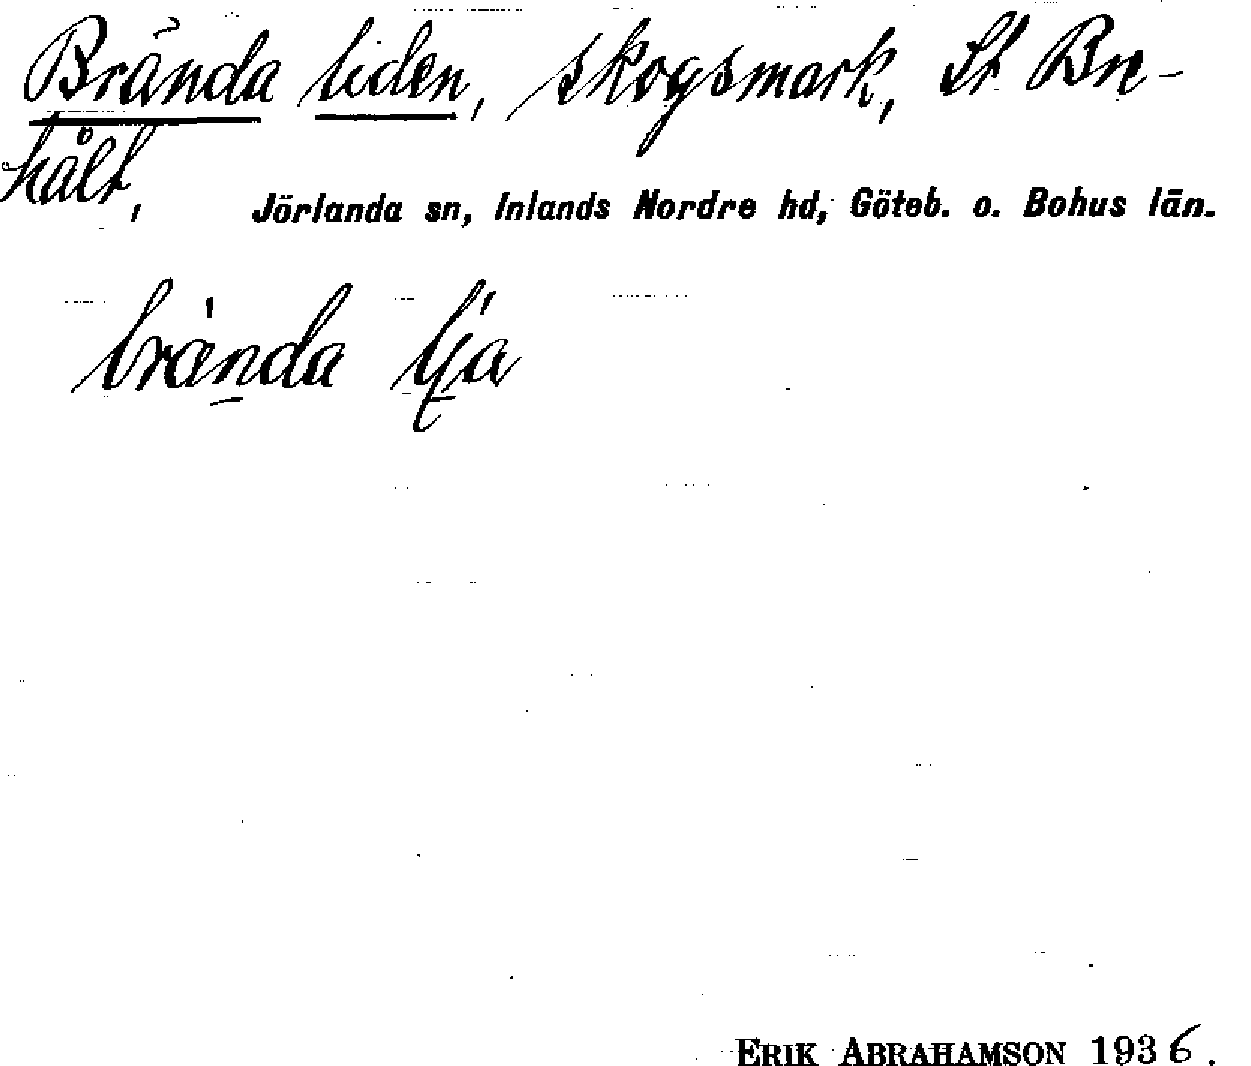 Brända liden, skogsmark, St Bn-
hålt,
Jörlanda sn, Inlands Nordre hd, Göteb. o. Bohus län.
brænda lia
ERIK ABRAHAMSON 1936.